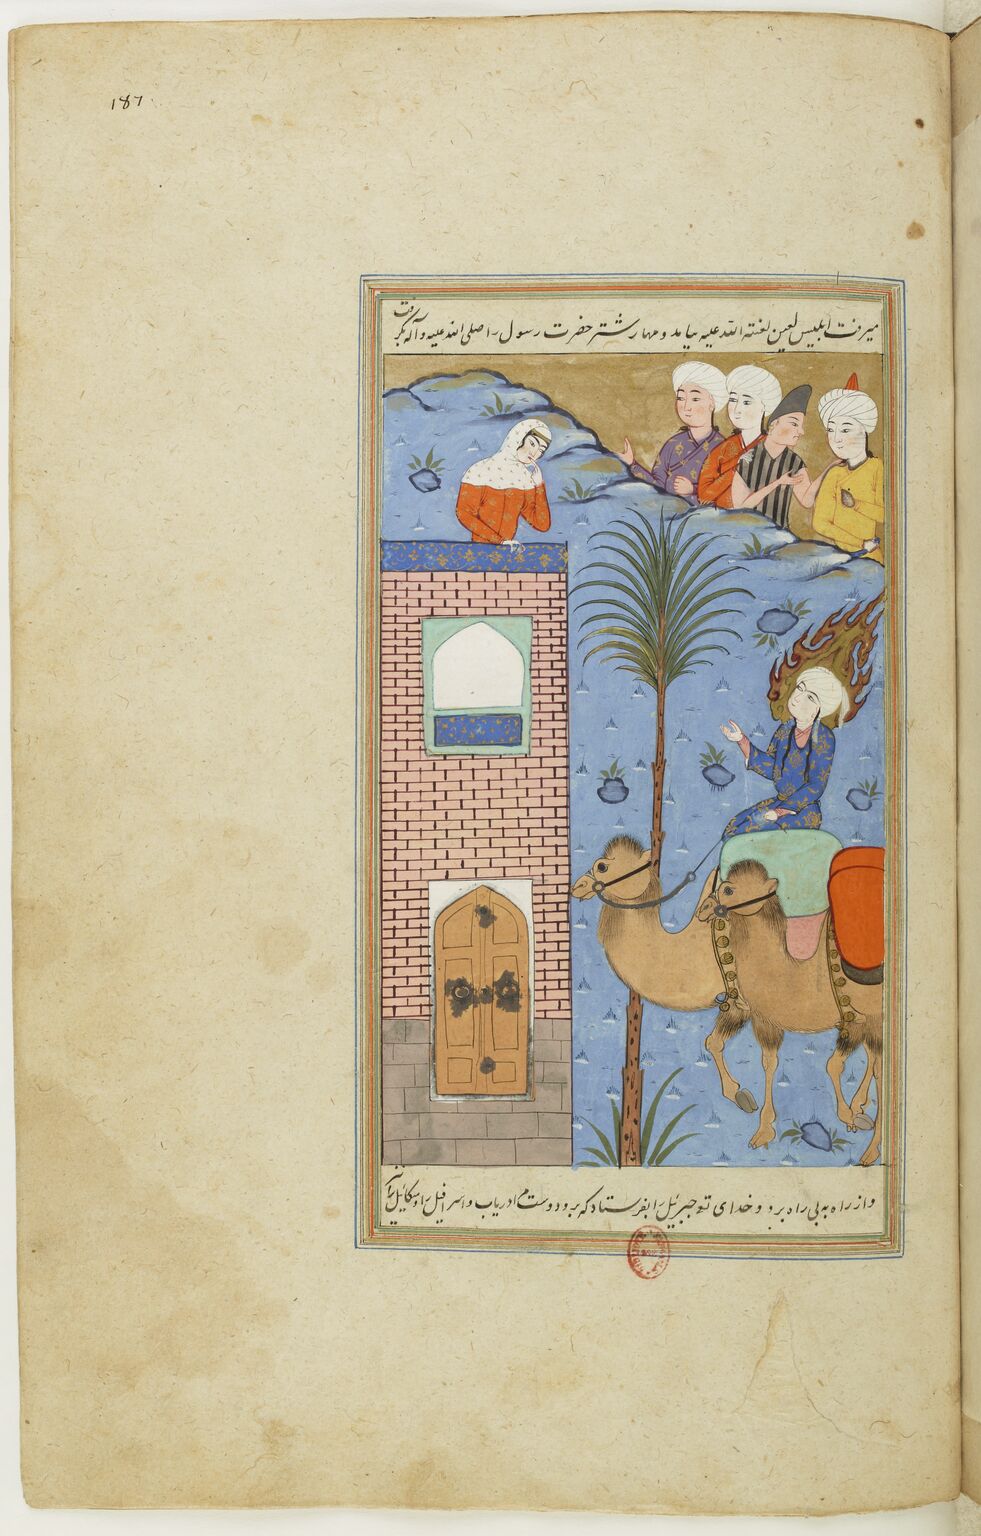 187
میرفت ابلیس لعین لعنة الله علیه بیامد و مهار شتر حضرت رسول را صلی الله علیه و آله بگرفت
و از راه به بی راه برد و خدای تو جبرئیل را بفرستاد که برو دوستم ادریاب و اسرافیل را و میکائیل را نیز